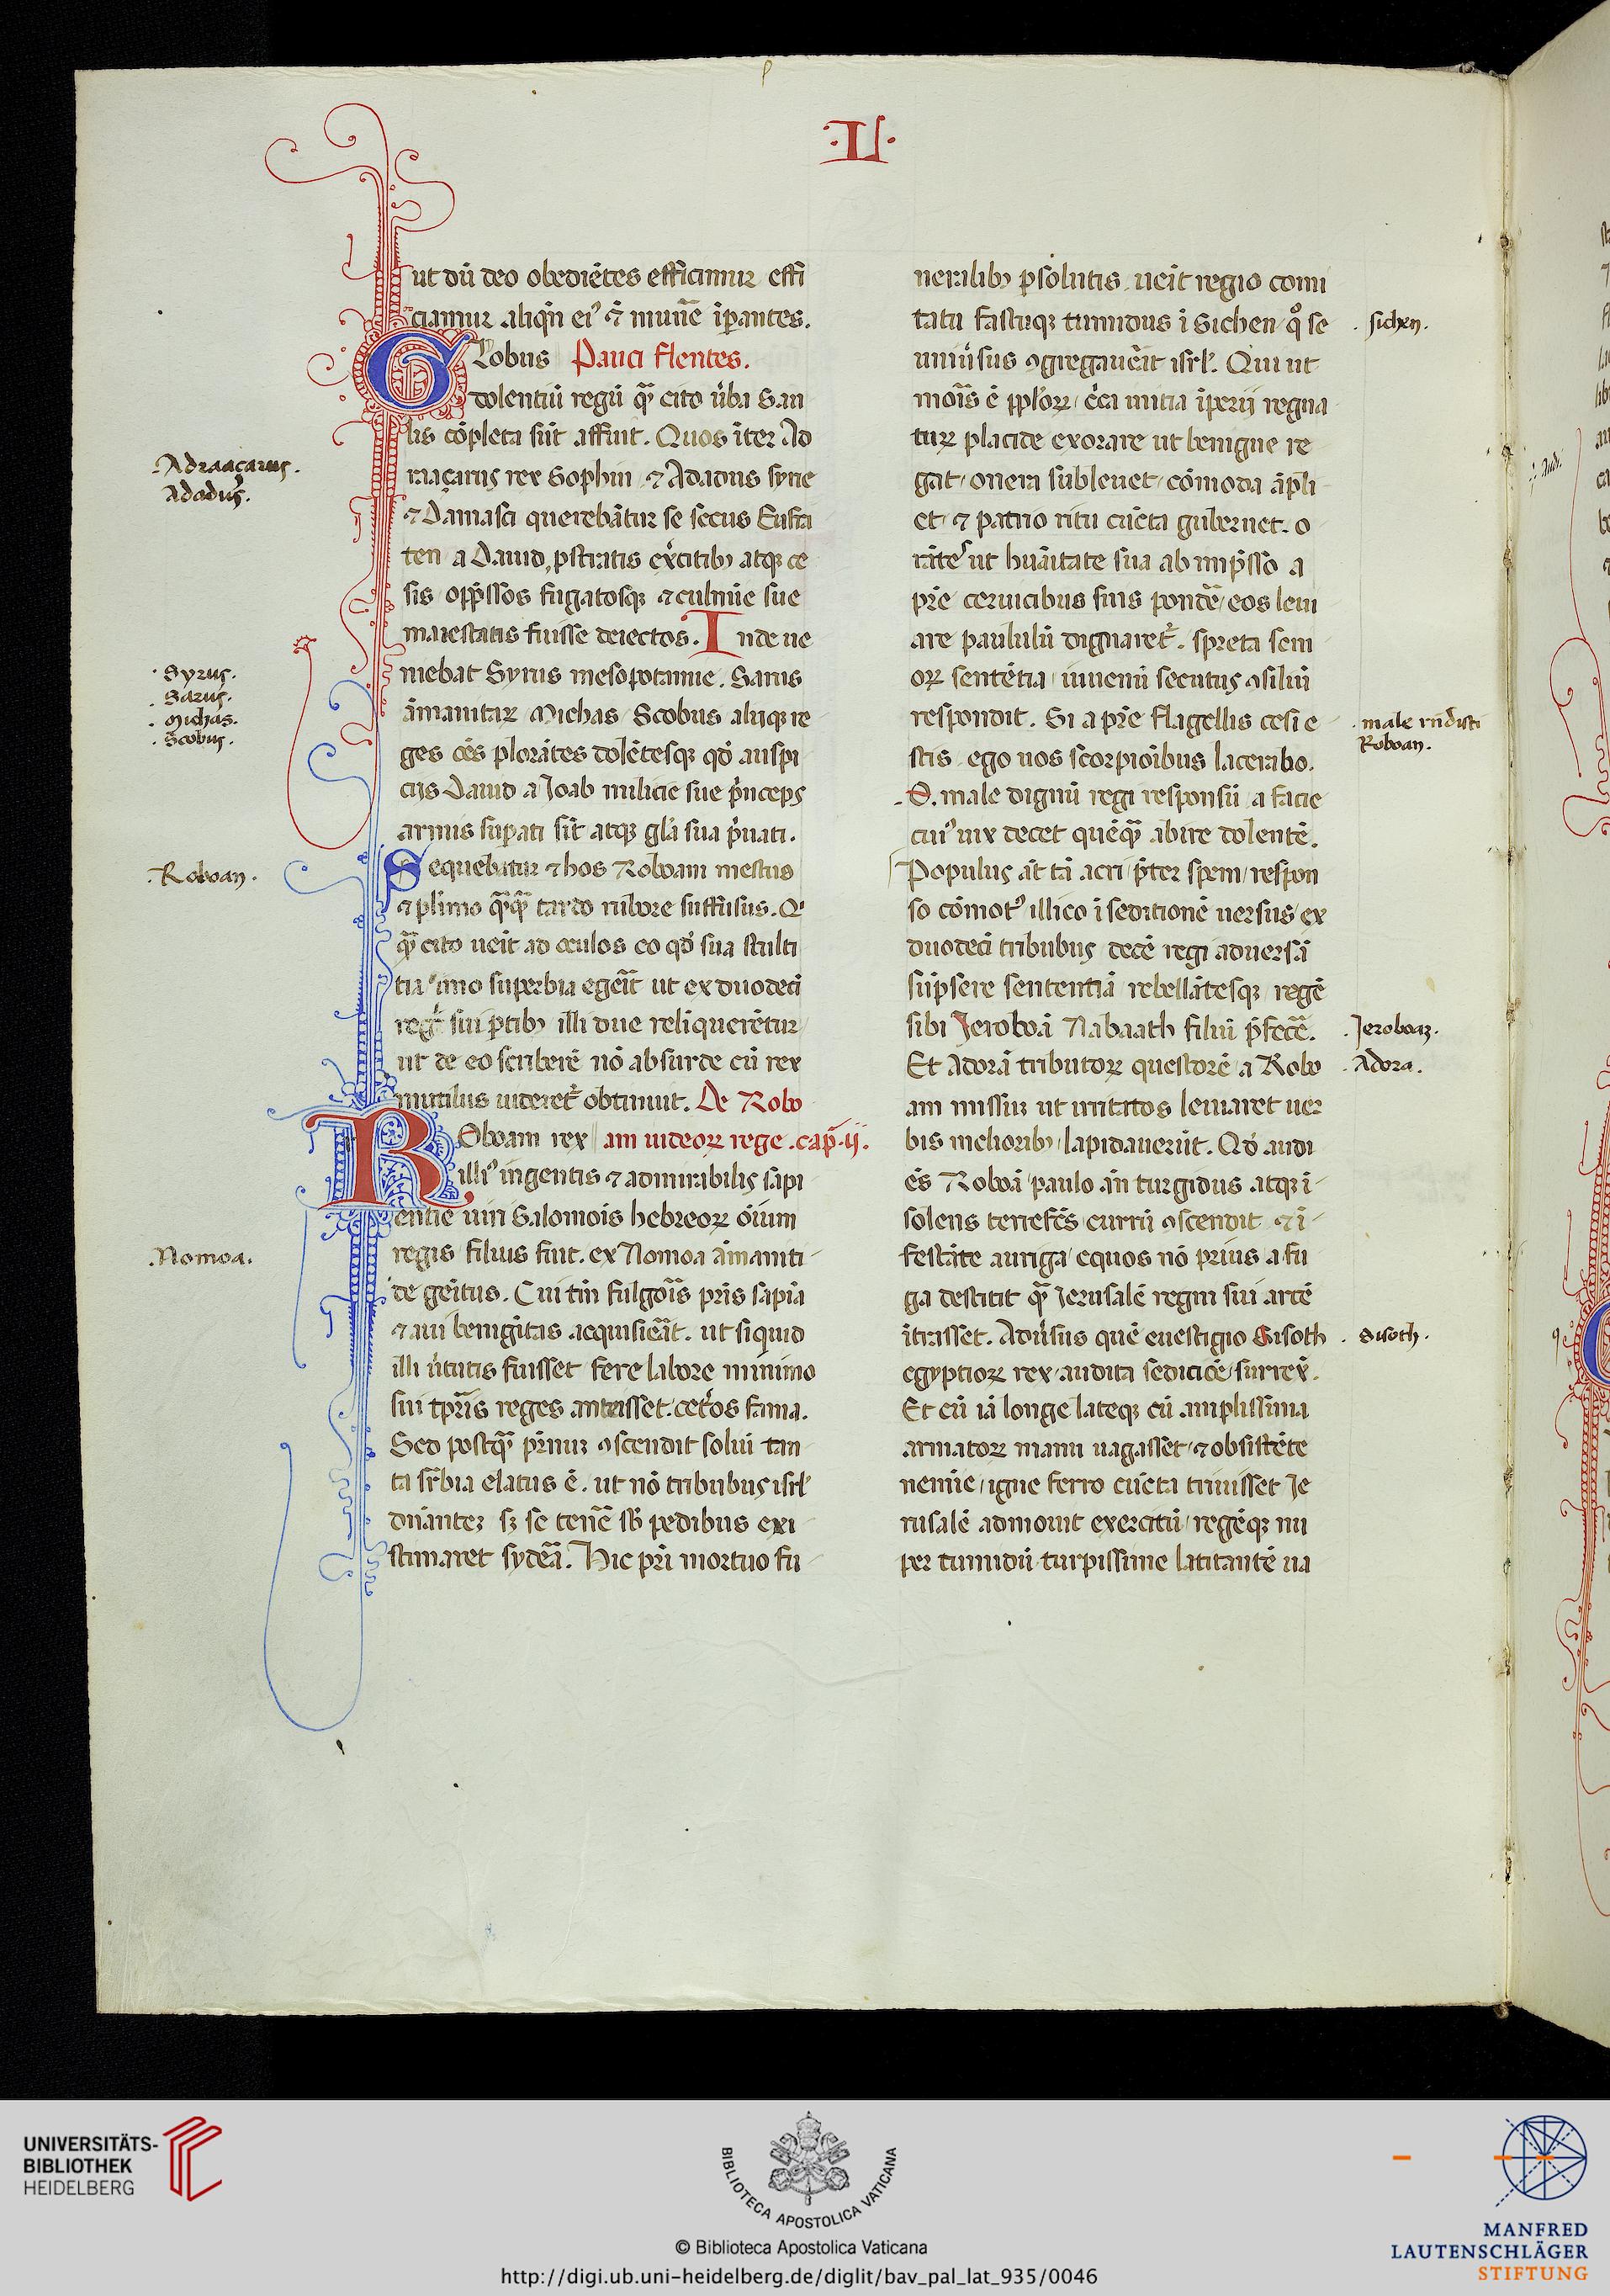 .II.
ut dū deo obediētes efficimur effi
ciamur aliqñ eiꝰ ⁊ munē īpantes.
Globus Pauci flentes.
dolentiū regū qͣ cito ūba San
lis cōpleta sūt affuit. Quos īter Ad
raaçarus rex Sophin ⁊ Adadus syrie
⁊ Damasci querebātur se secus Eufra
ten a Dauid ꝓstratis ex̄citibꝫ atqꝫ ce
sis opp̄ssos fugatosqꝫ ⁊ culmīe sue
maiestatis fuisse deiectos. Inde ue
niebat Syrus mesopotamie. Sarus
āmanitaꝝ Michas Scobus aliiqꝫ re
ges oēs plorātes dolētesqꝫ qđ auspi
ciis Dauid a Joab milicie sue p̄nceps
armis supati sūt atqꝫ gl̄a sua p̄uati.
Sequebatur ⁊ hos Roboam mestus
⁊ pl̄imo qͣqͣ tardo rubore suffusus. Qͥ
qͣ cito ueīt ad oculos eo qđ sua stulti
tia imo superbia egeīt ut ex duodeci
regͭ sui ptibꝫ illi due reliquerētur
ut de eo scriberē nō absurde cū rex
mutilus uideret̄ obtinuit. De Robo
Roboam rex am iudeoꝝ rege .cap̄.ij.
illiꝰ ingentis ⁊ admirabilis sapi
entie uiri Salomōis hebreoꝝ oīum
regis filius fuit. ex Nomoa āmaniti
de geītus. Cui tn̄ fulgoīs pr̄is sapīa
⁊ aui benigītas acquisieāt. ut siquid
illi ūtutis fuisset fere labore minimo
sui tp̄ris reges anteisset. cet̄os fama.
Sed postqͣ p̄mum ꝯscendit soliū tan
ta sr̄bia elatus ē. ut nō tribubus isrl̓
dn̄antem sꝫ se terrē sb̄ pedibus exi
stimaret sydeā. Hic pr̄i mortuo fu
neralibꝫ ꝑsolutis ueīt regio comi
tatu fastuqꝫ tumidus ī Sichen qͦ se
uniūsus ꝯgregauēat isrl̓. Qui ut
moīs ē pploꝝ cēa initia īperij regna
turū placide exorare ut benigne re
gat onera subleuet cōmoda āpli
et ⁊ patrio ritu cūcta gubernet. o
rāteſ ut huāitate sua ab imp̄sso a
pr̄e ceruicibus suis pondē eos leui
are paululū dignaret̄. spreta sem
oꝝ sentētia iuuenū secutus ꝯsiliū
respondit. Si a pr̄e flagellis cesi e
stis ego uos scorpiōibus lacerabo.
O. male dignū regi responsū a facie
cuiꝰ uix decet quēqͣ abire dolentē.
Populus āt tā acri p̄ter spem respon
so cōmotꝰ illico ī seditionē uersus ex
duodeci tribubus decē regi aduersā
sūpsere sententiā rebellātesqꝫ regē
sibi Jeroboā Nabaath filiū p̄fecē.
Et Adorā tributoꝝ questorē a Robo
am missum ut irritatos leniaret uer
bis melioribꝫ lapidauerūt. Qđ audi
ēs Roboā paulo an̄ turgidus atqꝫ ī
solens terrefēs currū ꝯscendit ⁊ ī
festāte auriga equos nō prius a fu
ga destitit qͣ Jerusalē regni sui arcē
ītrasset. Adūsus quē euestigio Sisoth
egyptioꝝ rex audita sediciōe surrex̄.
Et cū iā longe lateqꝫ cū amplissima
armatoꝝ manu uagasset ⁊ obsistēte
nemīe igne ferro cūcta triuisset Je
rusalē admouit exercitū regēqꝫ nu
per tumidū turpissime latitantē ua
.Adraaçarus.
Adadus.
.Syrus.
.Sarus.
.Michas.
.Scobus.
.Roboan.
.Nomoa.
.sichen.
.male rn̄disti
Roboan.
.Jeroboaꝫ.
.Adora.
.Sisoth.
UNIVERSITÄTS-
BIBLIOTHEK
HEIDELBERG
BIBLIOTECA APOSTOLICA VATICANA
© Biblioteca Apostolica Vaticana
http://digi.ub.uni-heidelberg.de/diglit/bav_pal_lat_935/0046
MANFRED
LAUTENSCHLÄGER
STIFTUNG